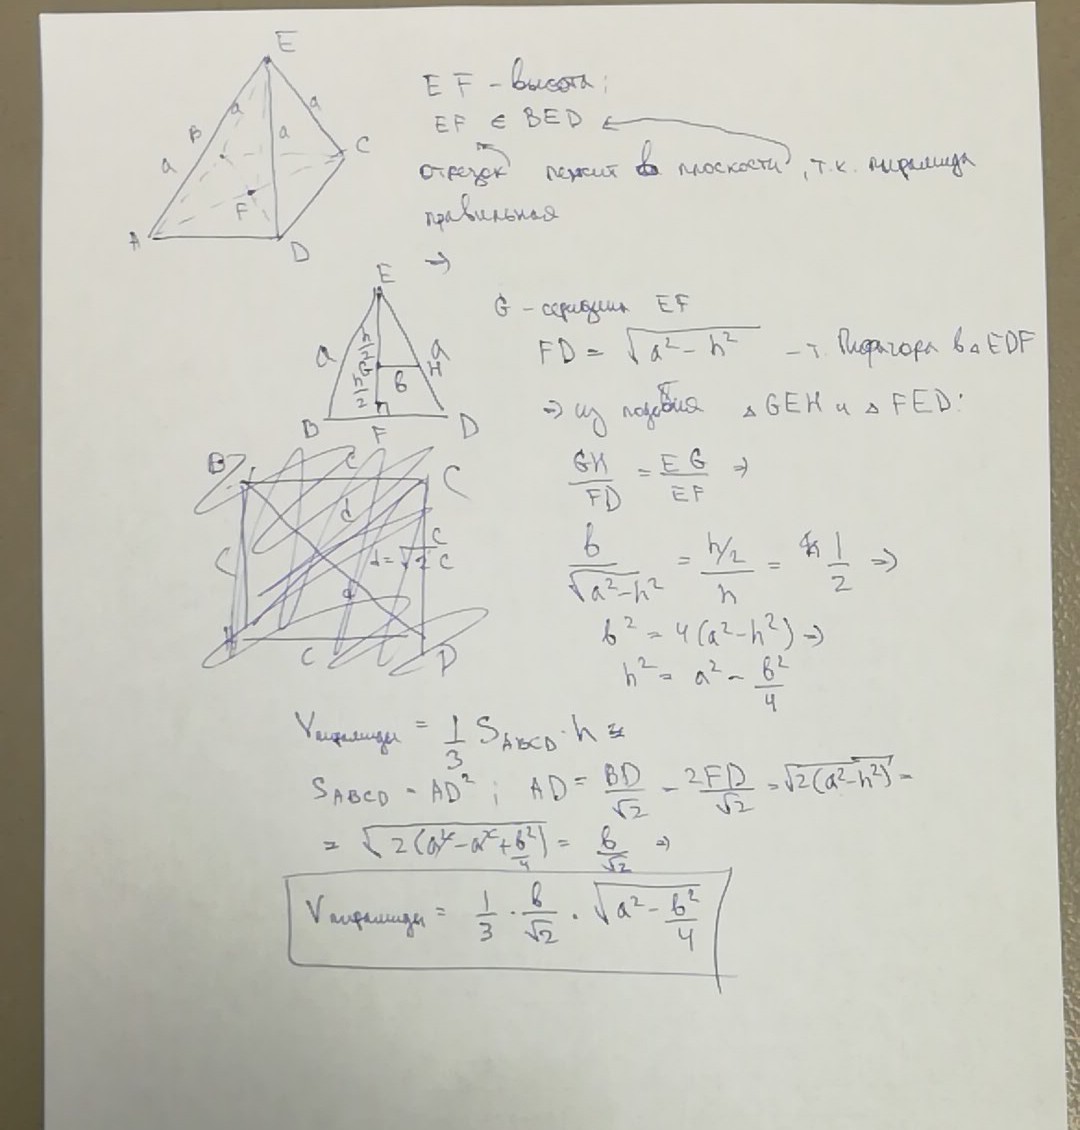 E
B a a a
a C
F
A D
EF – высота;
EF ∈ BED
отрезок лежит в плоскости, т.к. пирамида
правильная
⇒
E
a h/2 a
G H
h/2 в
B F D
G – середина EF
FD = √(a² − h²) – т. Пифагора в △EDF
⇒ из подобия △GEH и △FED:
GH/FD = EG/EF ⇒
в/√(a² − h²) = (h/2)/h = 1/2 ⇒
в² = 4(a² − h²) ⇒
h² = a² − в²/4
B c C
d
c d = √2 c c
d
c D
Vпирамиды = 1/3 S_ABCD · h =
S_ABCD = AD²; AD = BD/√2 = 2FD/√2 = √(2(a² − h²)) =
= √(2(a² − a² + в²/4)) = в/√2 ⇒
Vпирамиды = 1/3 · в/√2 · √(a² − в²/4)